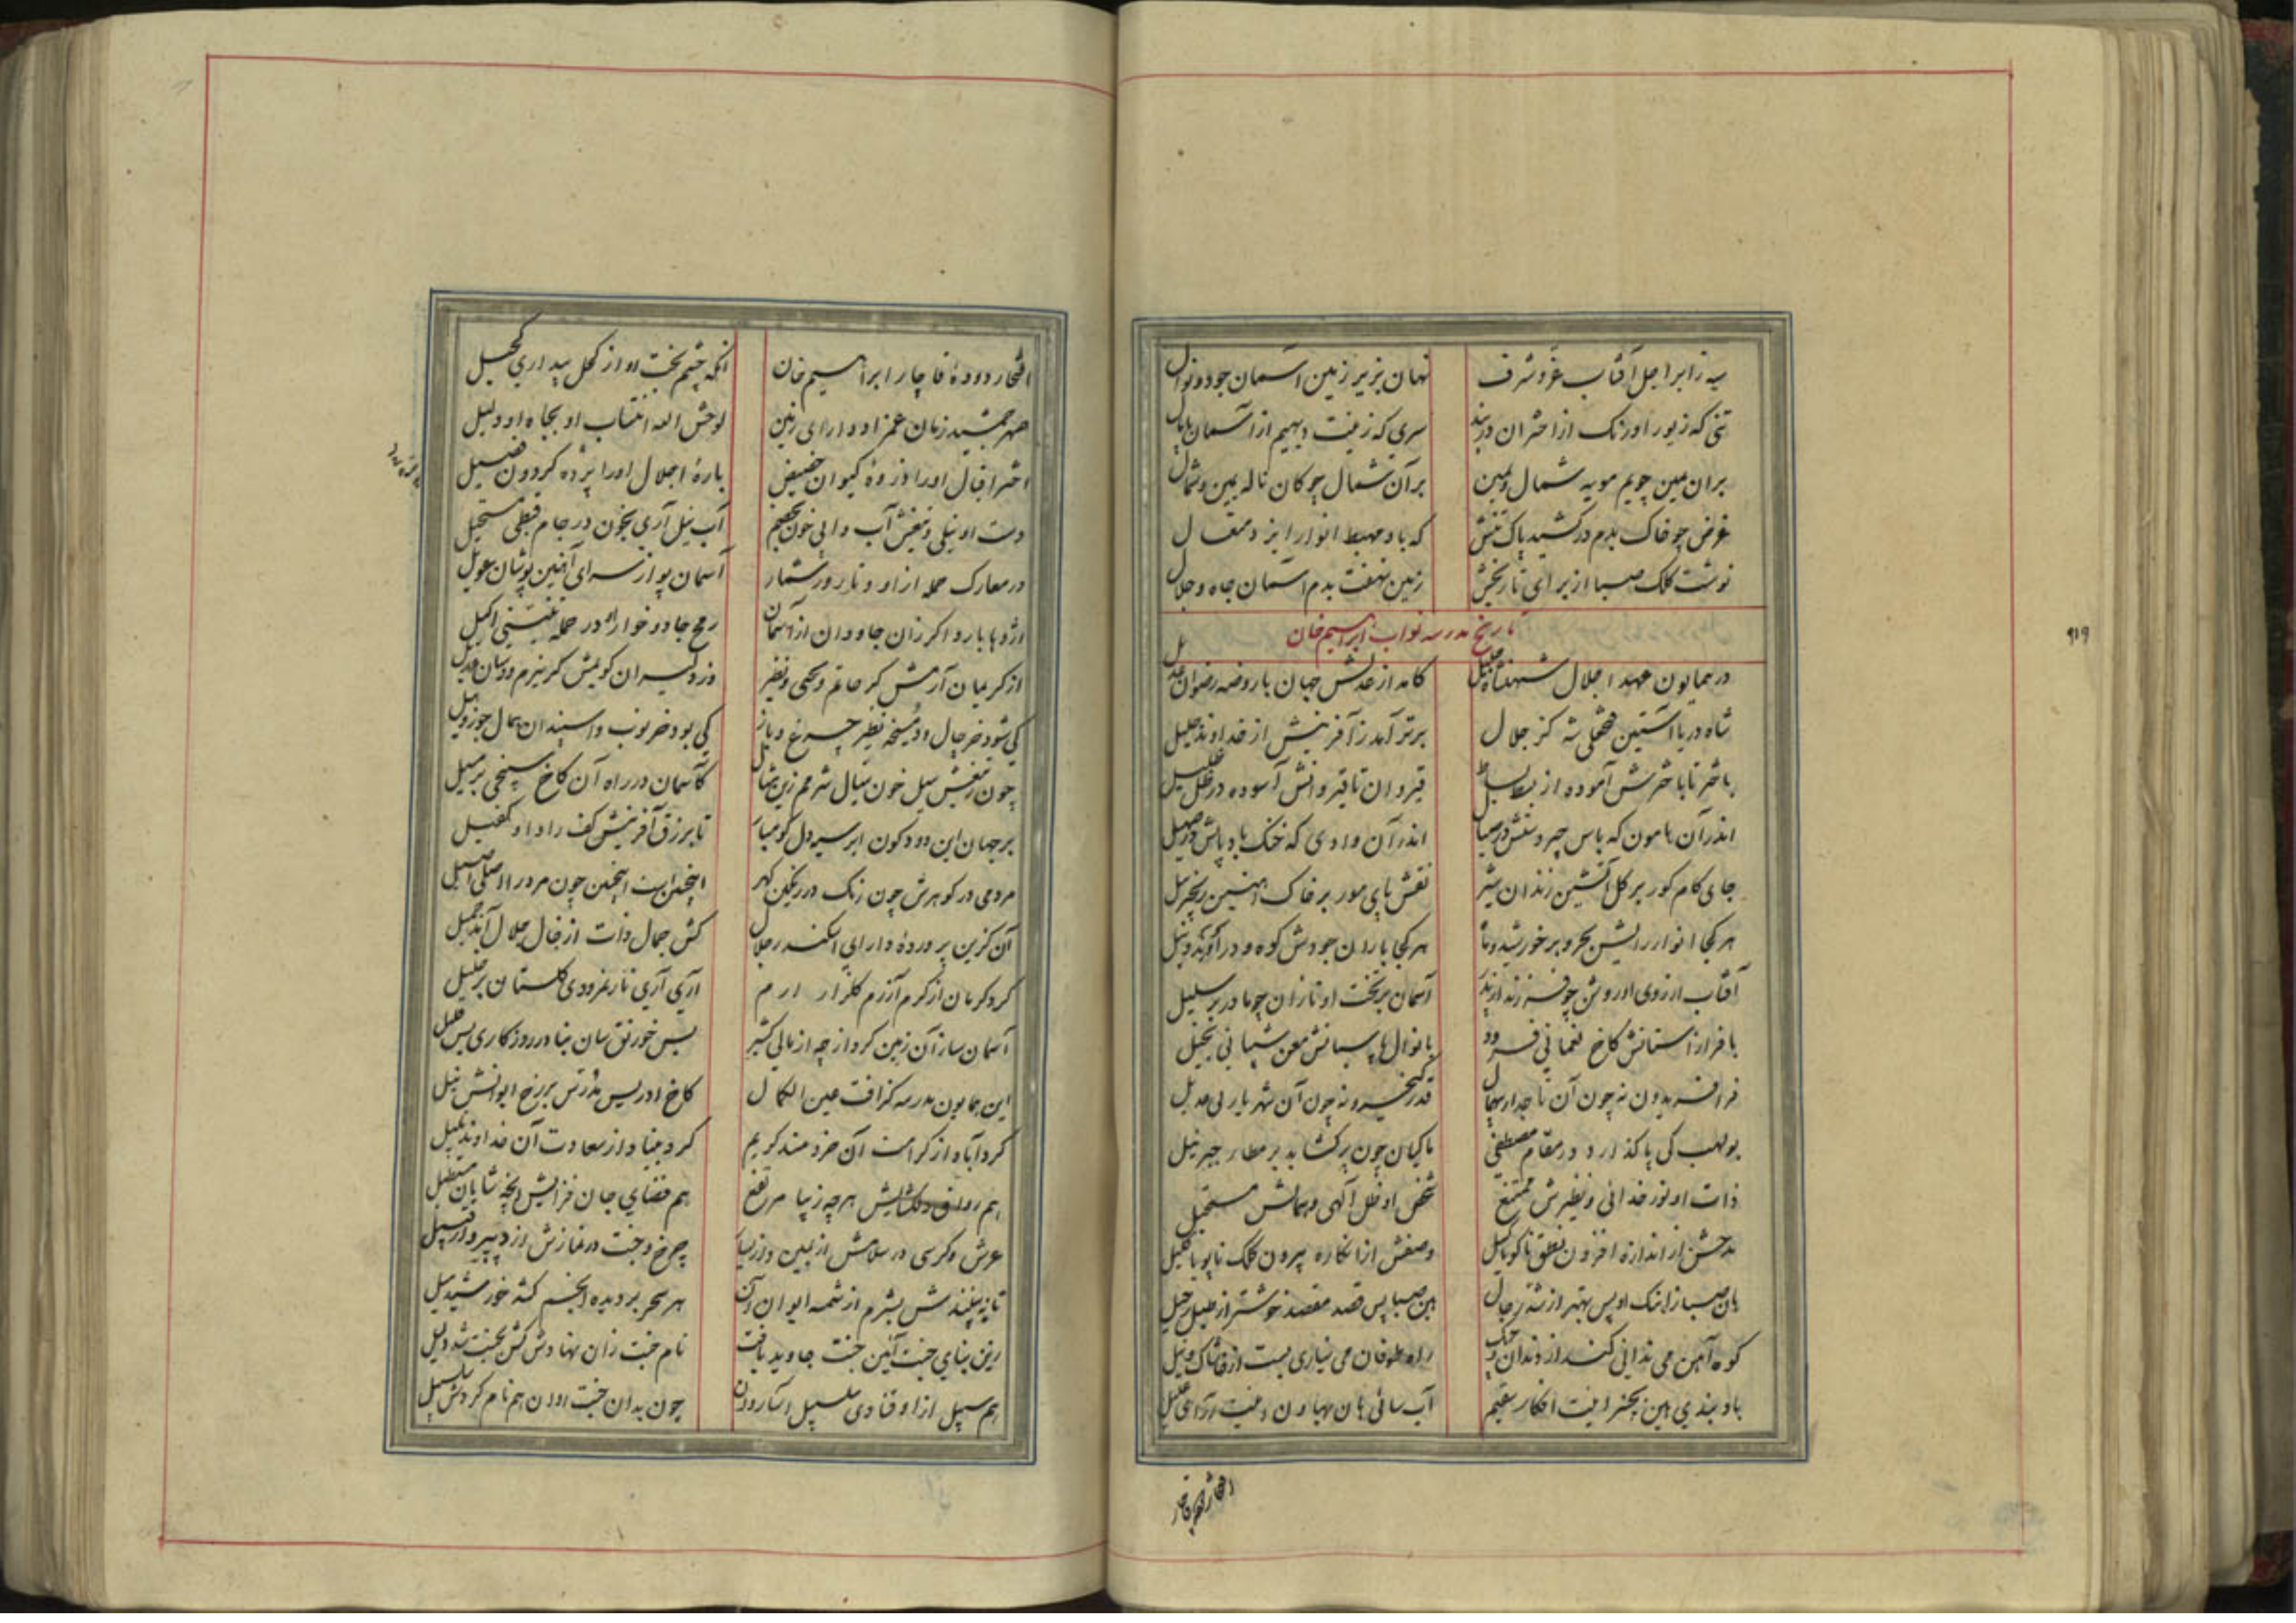 سیه ز ابر اجل آفتاب عز و شرف نهان بزیر زمین آسمان جود و نوال
تنی که زیور اورنک از اختران سری که زینت دیهیم از آسمان
بران یمین چویم مویه شمال و یمین برآن شمال چو کان ناله یمین و شمال
غرض چو خاک بدم درکشید پاک تنش که باد مهبط انوار ایزد متعال
نوشت کلک صبا از برای تاریخش زمین نهفت بدم آسمان جاه و جلال
تاریخ مدرسه نواب ابراهیم خان
در همایون عهد اجلال شهنشاه جلیل کامد از عدلش جهان با روضه رضوان عدیل
شاه دریا آستین فتحعلی شه کز جلال برتر آمد ز آفرینش از خداوند جلیل
باختر تا باخترش آموده از بسط بساط قیروان تا قیروانش آسوده در ظل ظلیل
اندر آن هامون که باس اندر آن وادی که خنک باد پایش در صهیل
جای کام کور بر کل آتشین دندان شیر نقش پای مور بر خاک آهنین زنجیر پیل
هر کجا انوار رایش بحر و بر خورشید و هر کجا باران جودش کوه و در
آفتاب از روی او روشن چو فرزند از پدر آسمان بر تخت او نازان چو مادر بر سلیل
با فراز آستانش کاخ نعمانی فرود با نوال پاسبانش معن شیبانی بخیل
فر افریدون نه چون آن تاجدار بیهمال قدر کیخسرو نه چون آن شهریار بی عدیل
بولهب کی پا گذارد در مقام مصطفی ماکیان چون پر کشاید بر مطار جبرئیل
ذات او نور خدائی و نظیرش ممتنع شخص او ظل آلهی و همالش مستحیل
مدحش از اندازه افزون نطق ناکویا کلیل وصفش از انکاره بیرون کلک ناپویا علیل
هان صبا زهین صبا پس قصه مقصد خوشتر از
کوه آهن می ندانی کند از دندان راه طوفان می نیاری بست از خاشاک و
باد بندی هین بچنبر اینت افکار سقیم آب سائی هان بهاون اینت آرای علیل
افتخار دوده قاجار
افتخار دوده قاجار ابراهیم خان آنکه چشم بخت او از کحل بیداری کحیل
صهر جمشید زمان عمزاد دارای زمین لوحش الله انتساب او بجاه او دلیل
اختر اقبال او را ذروه کیوان حضیض باره اجلال او را پرده گردون فصیل
دست او نیلی و تیغش آب و آبی خون بخصم آب نیل آری بخون در جام قبطی مستحیل
در معارک حمله از او و نابرور شمار آسمان پر از سرای آهنین پوشان عویل
اژدها بارد اگر زان جاودان از آسمان رمح جادو خوار او در حمله تنینی اکیل
از کریمان آرمش گر حاتم و یحیی نظیر وز دلیران کویمش کر نیرم و دستان بدیل
کی شود خرچال و نظیر چرغ و باز کی بود خرنوب و اسپندان همال جوز و هیل
چون ز تیغش سیل خون سیال شرمم زین مثال کآسمان در راه آن کاخ سپنجی بر مسیل
بر جهان این دود کون ابر سیه دل کو مبار تا برزق آفرینش کف راد او کفیل
مردمی در کوهرش چون رنک در رنکین گهر اینچنین است اینچنین چون مرد را اصلی اصیل
آن گزین پرورده دارای اسکندر جلال کش جمال ذات از خال جلال آمد جمیل
کرد کرمان از کرم آزرم گلزار ارم آری آری نار نمرودی گلستان بر خلیل
آسمان ساز آن زمین کرد از چه از بس خورنق سان بنا در روزگاری بس قلیل
این همایون مدرسه کز آفت عین الکمال کاخ ادریس مدرس بر رخ ایوانش نیل
کرد آباد از کرامت آن خردمند کریم کرد بنیاد از سعادت آن خداوند نبیل
هم رواق دلکشایش هر چه زیبا مرتفع هم فضای جان فزایش شایان مستطیل
عرش و کرسی در سلامش از یمین و از یسار چرخ و جنت در نمازش از دبیر و از قبیل
تا نه بینندش بشرم از شمسه ایوان آن هر سحر بر دیده انجم کشد خورشید میل
زین بنای جنت آئین جنت جاوید یافت نام جنت زان نهادش کش بجنت شد دلیل
هم سبیل از او فتادی سلسبیل چون بدان جنت روان هم نام کردش سلسبیل
۹۱۹